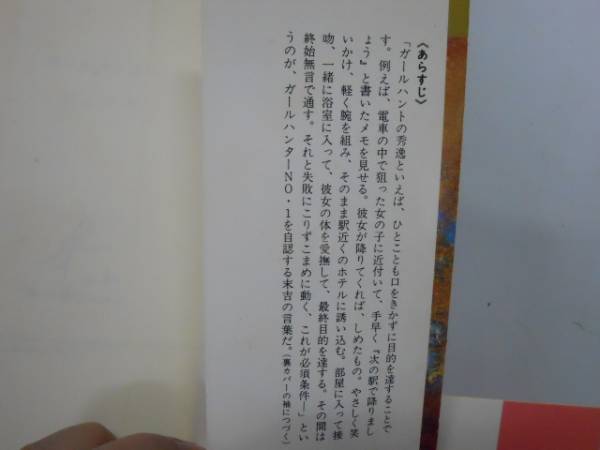 《あらすじ》
「ガールハントの秀逸といえば、ひとことも口をきかずに目的を達することで
す。例えば、電車の中で狙った女の子に近付いて、手早く『次の駅で降りまし
ょう』と書いたメモを見せる。彼女が降りてくれば、しめたもの。やさしく笑
いかけ、軽く腕を組み、そのまま駅近くのホテルに誘い込む。部屋に入って接
吻、一緒に浴室に入って、彼女の体を愛撫して、最終目的を達する。その間は
終始無言で通す。それと失敗にこりずこまめに動く、これが必須条件―」とい
うのが、ガールハンターNO・1を自認する末吉の言葉だ。(裏カバーの袖につづく)